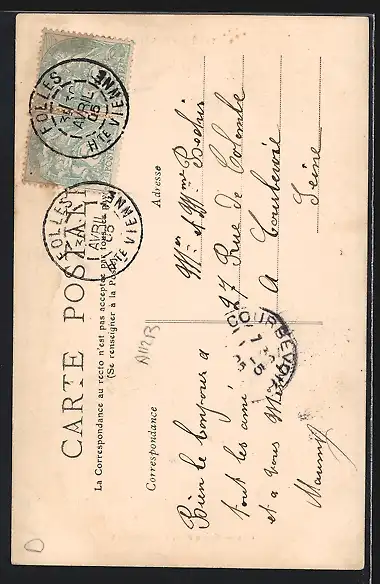 CARTE POSTALE
La Correspondance au recto n'est pas acceptée par tous les pays
(Se renseigner à la Poste)
Correspondance
Adresse
Bien le bonjour a
tout les ami
et a vous
Mr et Mme
27 Rue de Colombe
A Courbevoie
Seine
FOLLES
AVRIL
05
HTE VIENNE
FOLLES
1
AVRIL
05
HTE VIENNE
COURBEVOIE
A11273
D